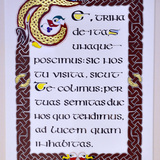 Te, trina
deitas
unaque
poscimus: sic nos
tu visita, sicut
te colimus: per
tuas semitas duc
nos quo tendimus,
ad lucem quam
inhabitas.